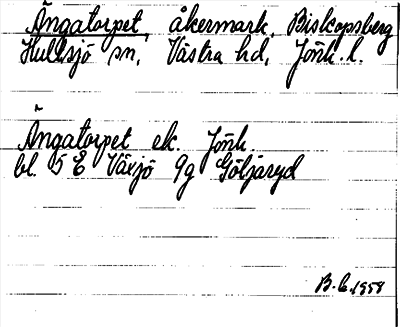 Ängatorpet, åkermark, Biskopsberg
Hultsjö sn, Västra hd, Jönk. l.
Ängatorpet ek. Jönk.
bl. 5 E Växjö 9g Göljaryd
B. C. 1958